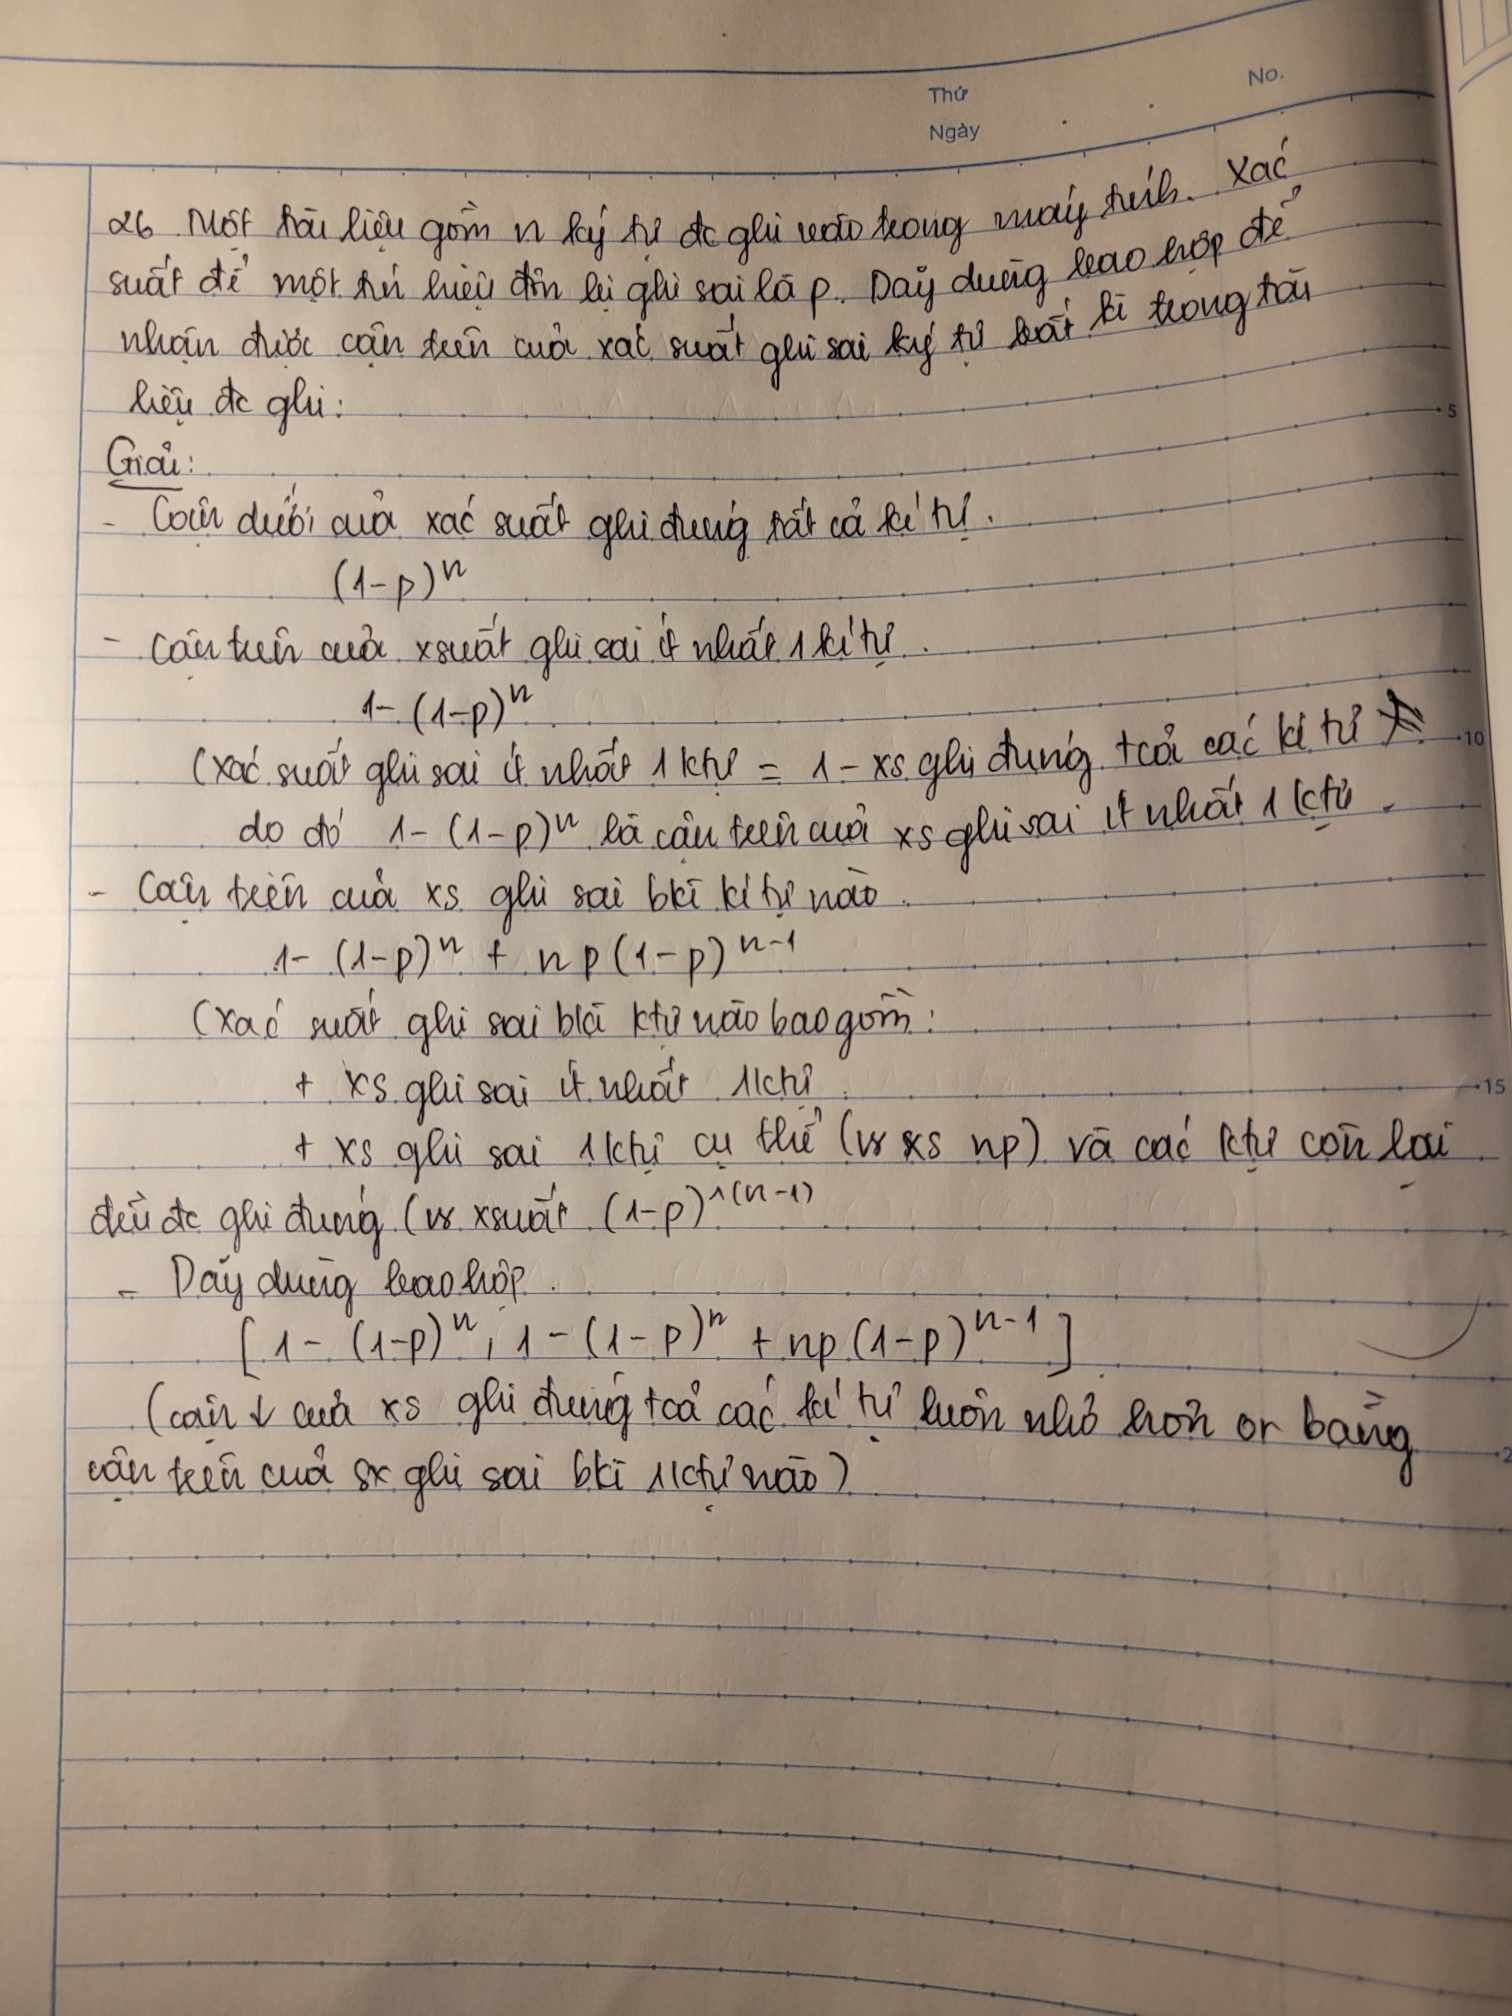 No.
Thứ
Ngày
26 Một tài liệu gồm n ký tự đc ghi vào trong máy tính. Xác
suất để một tín hiệu đơn lẻ ghi sai là p. Dãy dùng bao hợp để
nhận được cận trên của xác suất ghi sai ký tự bất kì trong tài
liệu đc ghi:
5
Giải:
- Cận dưới của xác suất ghi đúng tất cả kí tự.
(1-p)^n
- Cận trên của xsuất ghi sai ít nhất 1 kí tự.
1-(1-p)^n
(xác suất ghi sai ít nhất 1 ktự = 1 - xs ghi đúng tcả các kí tự
10
do đó 1-(1-p)^n là cận trên của xs ghi sai ít nhất 1 ktự.
- Cận trên của xs ghi sai bkì kí tự nào.
1-(1-p)^n + np(1-p)^n-1
(xác suất ghi sai bkì ktự nào bao gồm:
+ xs ghi sai ít nhất 1ktự.
15
+ xs ghi sai 1ktự cụ thể (vs xs np) và các ktự còn lại
đều đc ghi đúng (vs xsuất (1-p)^(n-1)
- Dãy dùng bao hợp.
[1-(1-p)^n, 1-(1-p)^n + np(1-p)^n-1]
(cận ↓ của xs ghi đúng tcả các kí tự luôn nhỏ hơn or bằng
cận trên của sx ghi sai bkì 1ktự nào)